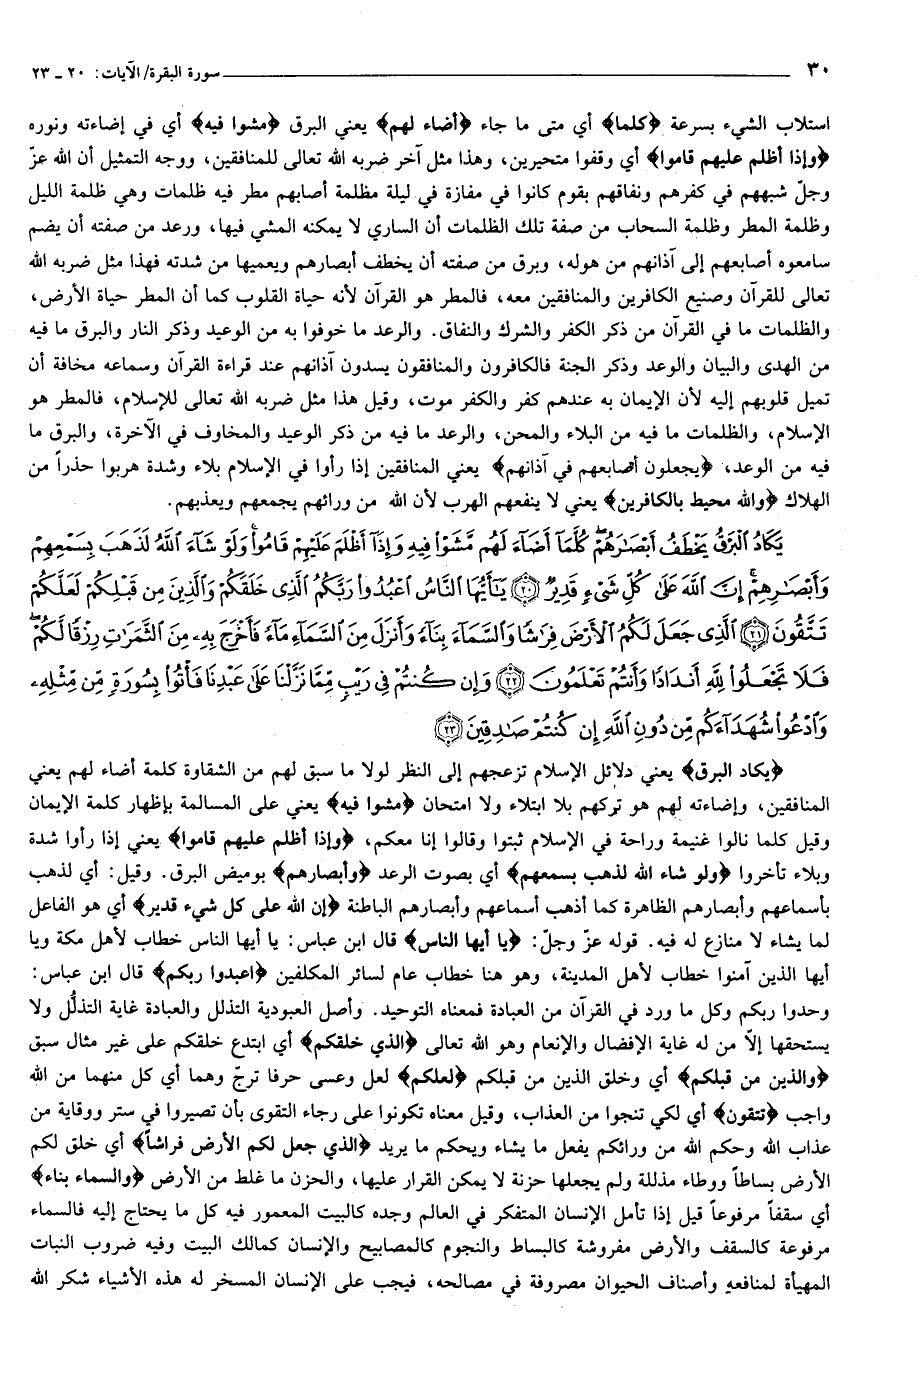 ٣٠ ــــــــــــــــــ سورة البقرة/ الآيات: ٢٠ ـ ٢٣
استلاب الشيء بسرعة ﴿كلما﴾ أي متى ما جاء ﴿أضاء لهم﴾ يعني البرق ﴿مشوا فيه﴾ أي في إضاءته ونوره
﴿وإذا أظلم عليهم قاموا﴾ أي وقفوا متحيرين، وهذا مثل آخر ضربه الله تعالى للمنافقين، ووجه التمثيل أن الله عزّ
وجلّ شبههم في كفرهم ونفاقهم بقوم كانوا في مفازة في ليلة مظلمة أصابهم مطر فيه ظلمات وهي ظلمة الليل
وظلمة المطر وظلمة السحاب من صفة تلك الظلمات أن الساري لا يمكنه المشي فيها، ورعد من صفته أن يضم
سامعوه أصابعهم إلى آذانهم من هوله، وبرق من صفته أن يخطف أبصارهم ويعميها من شدته فهذا مثل ضربه الله
تعالى للقرآن وصنيع الكافرين والمنافقين معه، فالمطر هو القرآن لأنه حياة القلوب كما أن المطر حياة الأرض،
والظلمات ما في القرآن من ذكر الكفر والشرك والنفاق. والرعد ما خوفوا به من الوعيد وذكر النار والبرق ما فيه
من الهدى والبيان والوعد وذكر الجنة فالكافرون والمنافقون يسدون آذانهم عند قراءة القرآن وسماعه مخافة أن
تميل قلوبهم إليه لأن الإيمان به عندهم كفر والكفر موت، وقيل هذا مثل ضربه الله تعالى للإسلام، فالمطر هو
الإسلام، والظلمات ما فيه من البلاء والمحن، والرعد ما فيه من ذكر الوعيد والمخاوف في الآخرة، والبرق ما
فيه من الوعد، ﴿يجعلون أصابعهم في آذانهم﴾ يعني المنافقين إذا رأوا في الإسلام بلاء وشدة هربوا حذراً من
الهلاك ﴿والله محيط بالكافرين﴾ يعني لا ينفعهم الهرب لأن الله من ورائهم يجمعهم ويعذبهم.
يَكَادُ ٱلْبَرْقُ يَخْطَفُ أَبْصَٰرَهُمْ ۖ كُلَّمَآ أَضَآءَ لَهُم مَّشَوْا۟ فِيهِ وَإِذَآ أَظْلَمَ عَلَيْهِمْ قَامُوا۟ ۚ وَلَوْ شَآءَ ٱللَّهُ لَذَهَبَ بِسَمْعِهِمْ
وَأَبْصَٰرِهِمْ ۚ إِنَّ ٱللَّهَ عَلَىٰ كُلِّ شَىْءٍ قَدِيرٌ ﴿٢٠﴾ يَٰٓأَيُّهَا ٱلنَّاسُ ٱعْبُدُوا۟ رَبَّكُمُ ٱلَّذِى خَلَقَكُمْ وَٱلَّذِينَ مِن قَبْلِكُمْ لَعَلَّكُمْ
تَتَّقُونَ ﴿٢١﴾ ٱلَّذِى جَعَلَ لَكُمُ ٱلْأَرْضَ فِرَٰشًا وَٱلسَّمَآءَ بِنَآءً وَأَنزَلَ مِنَ ٱلسَّمَآءِ مَآءً فَأَخْرَجَ بِهِۦ مِنَ ٱلثَّمَرَٰتِ رِزْقًا لَّكُمْ ۖ
فَلَا تَجْعَلُوا۟ لِلَّهِ أَندَادًا وَأَنتُمْ تَعْلَمُونَ ﴿٢٢﴾ وَإِن كُنتُمْ فِى رَيْبٍ مِّمَّا نَزَّلْنَا عَلَىٰ عَبْدِنَا فَأْتُوا۟ بِسُورَةٍ مِّن مِّثْلِهِۦ
وَٱدْعُوا۟ شُهَدَآءَكُم مِّن دُونِ ٱللَّهِ إِن كُنتُمْ صَٰدِقِينَ ﴿٢٣﴾
﴿يكاد البرق﴾ يعني دلائل الإسلام تزعجهم إلى النظر لولا ما سبق لهم من الشقاوة كلمة أضاء لهم يعني
المنافقين، وإضاءته لهم هو تركهم بلا ابتلاء ولا امتحان ﴿مشوا فيه﴾ يعني على المسالمة بإظهار كلمة الإيمان
وقيل كلما نالوا غنيمة وراحة في الإسلام ثبتوا وقالوا إنا معكم، ﴿وإذا أظلم عليهم قاموا﴾ يعني إذا رأوا شدة
وبلاء تأخروا ﴿ولو شاء الله لذهب بسمعهم﴾ أي بصوت الرعد ﴿وأبصارهم﴾ بوميض البرق. وقيل: أي لذهب
بأسماعهم وأبصارهم الظاهرة كما أذهب أسماعهم وأبصارهم الباطنة ﴿إن الله على كل شيء قدير﴾ أي هو الفاعل
لما يشاء لا منازع له فيه. قوله عزّ وجلّ: ﴿يا أيها الناس﴾ قال ابن عباس: يا أيها الناس خطاب لأهل مكة ويا
أيها الذين آمنوا خطاب لأهل المدينة، وهو هنا خطاب عام لسائر المكلفين ﴿اعبدوا ربكم﴾ قال ابن عباس:
وحدوا ربكم وكل ما ورد في القرآن من العبادة فمعناه التوحيد. وأصل العبودية التذلل والعبادة غاية التذلُّل ولا
يستحقها إلاّ من له غاية الإفضال والإنعام وهو الله تعالى ﴿الذي خلقكم﴾ أي ابتدع خلقكم على غير مثال سبق
﴿والذين من قبلكم﴾ أي وخلق الذين من قبلكم ﴿لعلكم﴾ لعل وعسى حرفا ترجّ وهما أي كل منهما من الله
واجب ﴿تتقون﴾ أي لكي تنجوا من العذاب، وقيل معناه تكونوا على رجاء التقوى بأن تصيروا في ستر ووقاية من
عذاب الله وحكم الله من ورائكم يفعل ما يشاء ويحكم ما يريد ﴿الذي جعل لكم الأرض فراشاً﴾ أي خلق لكم
الأرض بساطاً ووطاء مذللة ولم يجعلها حزنة لا يمكن القرار عليها، والحزن ما غلظ من الأرض ﴿والسماء بناء﴾
أي سقفاً مرفوعاً قيل إذا تأمل الإنسان المتفكر في العالم وجده كالبيت المعمور فيه كل ما يحتاج إليه فالسماء
مرفوعة كالسقف والأرض مفروشة كالبساط والنجوم كالمصابيح والإنسان كمالك البيت وفيه ضروب النبات
المهيأة لمنافعه وأصناف الحيوان مصروفة في مصالحه، فيجب على الإنسان المسخر له هذه الأشياء شكر الله